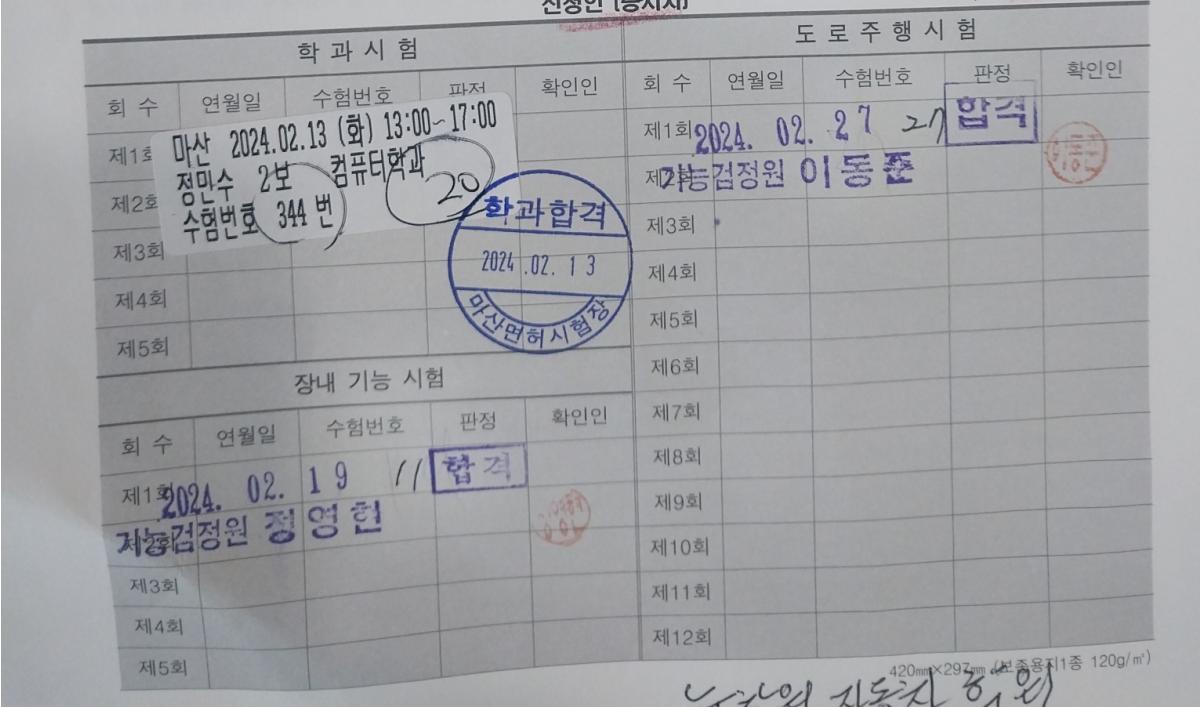 신청인 (응시자)
학 과 시 험
회 수 연월일 수험번호 판정 확인인
제1회
제2회
제3회
제4회
제5회
마산 2024.02.13 (화) 13:00~17:00
정민수 2보 컴퓨터학과
수험번호 344 번
20
학과합격
2024.02.13
마산면허시험장
장내 기능 시험
회 수 연월일 수험번호 판정 확인인
제1회 2024. 02. 19 11 합격
제2회 기능검정원 정영현
제3회
제4회
제5회
도 로 주 행 시 험
회 수 연월일 수험번호 판정 확인인
제1회 2024. 02. 27 27 합격
제2회 기능검정원 이동준
제3회
제4회
제5회
제6회
제7회
제8회
제9회
제10회
제11회
제12회
420㎜×297㎜ (보존용지1종 120g/㎡)
자동차 학원